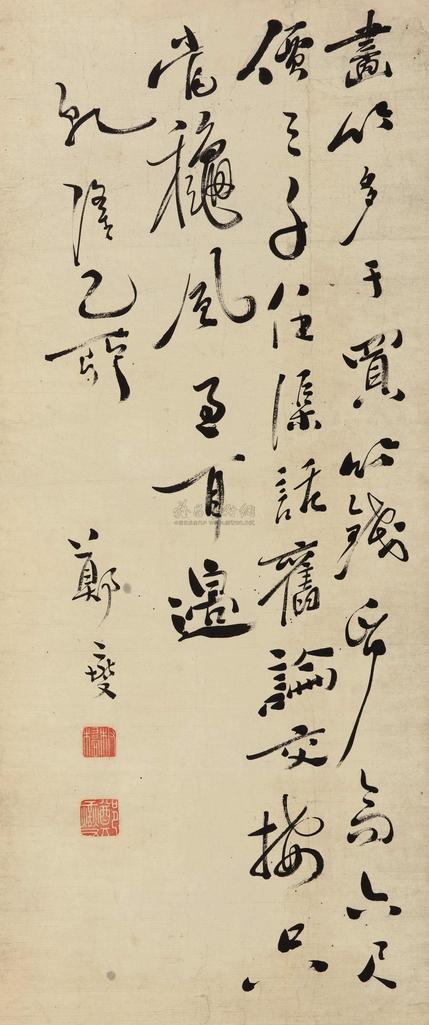 畫竹多于買竹錢帋高六尺
價三千任渠話舊論交接只
當龝風過耳邊
乾隆乙
鄭燮